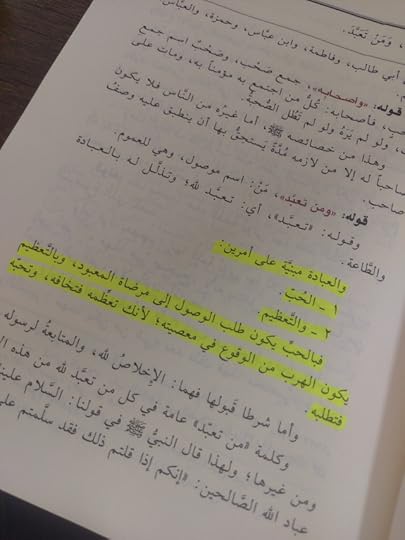 ، وَمَنْ تَعَبَّدَ.
أبي طالب، وفاطمة، وابن عبَّاس، وحمزة، والعبَّاس
قوله: «وأصحابه»، جمع صَحْب، وصَحْبٌ اسم جمع
صاحب، فأصحابه: كُلُّ من اجتمع به مؤمنًا به، ومات على
، ولو لم يَرَهُ ولو لم تَطُل الصُّحبةُ.
وهذا من خصائصه ﷺ، أما غيرُه من النَّاس فلا يكون
صاحباً له إلا من لازمه مُدَّةً يَستحِقُّ بها أن ينطبق عليه وصفُ
صاحب.
قوله: «ومن تعبَّد»، مَنْ: اسم موصول، وهي للعموم.
وقوله: «تعبَّد»، أي: تعبَّد لله؛ وتذلَّل له بالعبادة
والطَّاعة.
والعبادة مبنيَّة على أمرين:
١ - الحُبّ.
٢ - والتَّعظيم.
فبالحبِّ يكون طلب الوصول إلى مرضاة المعبود، وبالتَّعظيم
يكون الهرب من الوقوع في معصيته؛ لأنك تعظِّمه فتخافه، وتحبّه
فتطلبه.
وأما شرطا قَبولها فهما: الإخلاصُ لله، والمتابعةُ لرسوله
وكلمة «من تعبَّد» عامة في كل من تعبَّد لله من هذه
ومن غيرها؛ ولهذا قال النبيُّ ﷺ في قولنا: السَّلام علينا
عباد الله الصَّالحين: «إنكم إذا قلتم ذلك فقد سلَّمتم على